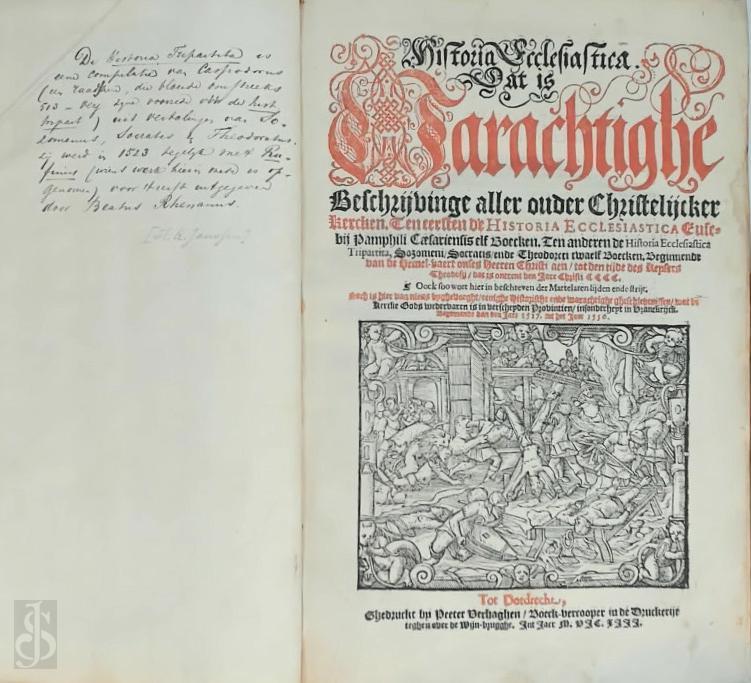 De Historia Tripartita is
een compilatie van Cassiodorus
(een raadsheer, die bloeide omstreeks
513 –
tripart) uit verhalingen van So-
zomenus, Socrates & Theodoretus.
zij werd in 1523 tegelijk met Ru-
finus (wiens werk hierin mede is op-
genomen) voor 't eerst uitgegeven
door Beatus Rhenanus.
[H.Q. Janssen]
Historia Ecclesiastica.
Dat is
Warachtighe
Beschrijvinge aller ouder Christelijcker
Kercken. Ten eersten de HISTORIA ECCLESIASTICA Euse-
bij Pamphili Cæsariensis elf Boecken. Ten anderen de Historia Ecclesiastica
Tripartita, Sozomeni, Socratis, ende Theodoreti twaelf Boecken, Beginnende
van de Hemel-vaert onses Heeren Christi aen / tot den tijde des Keysers
Theodosij / dat is ontrent den Jare Christi CCCC.
Oock soo wort hier in beschreven der Martelaren lijden ende strijt.
Noch is hier van nieus byghevoeght / eenighe Historische ende warachtighe gheschiedenissen / wat de
Kercke Gods wedervaren is in verscheyden Provintien / insonderheyt in Vranckrijck.
Beginnende van den Jare 1517. tot het Jaer 1556.
Tot Dordrecht,
Ghedruckt by Peeter Verhaghen / Boeck-vercooper in de Druckerije
teghen over de Wijn-brugghe. Int Jaer M. VIC. IIII.
JS